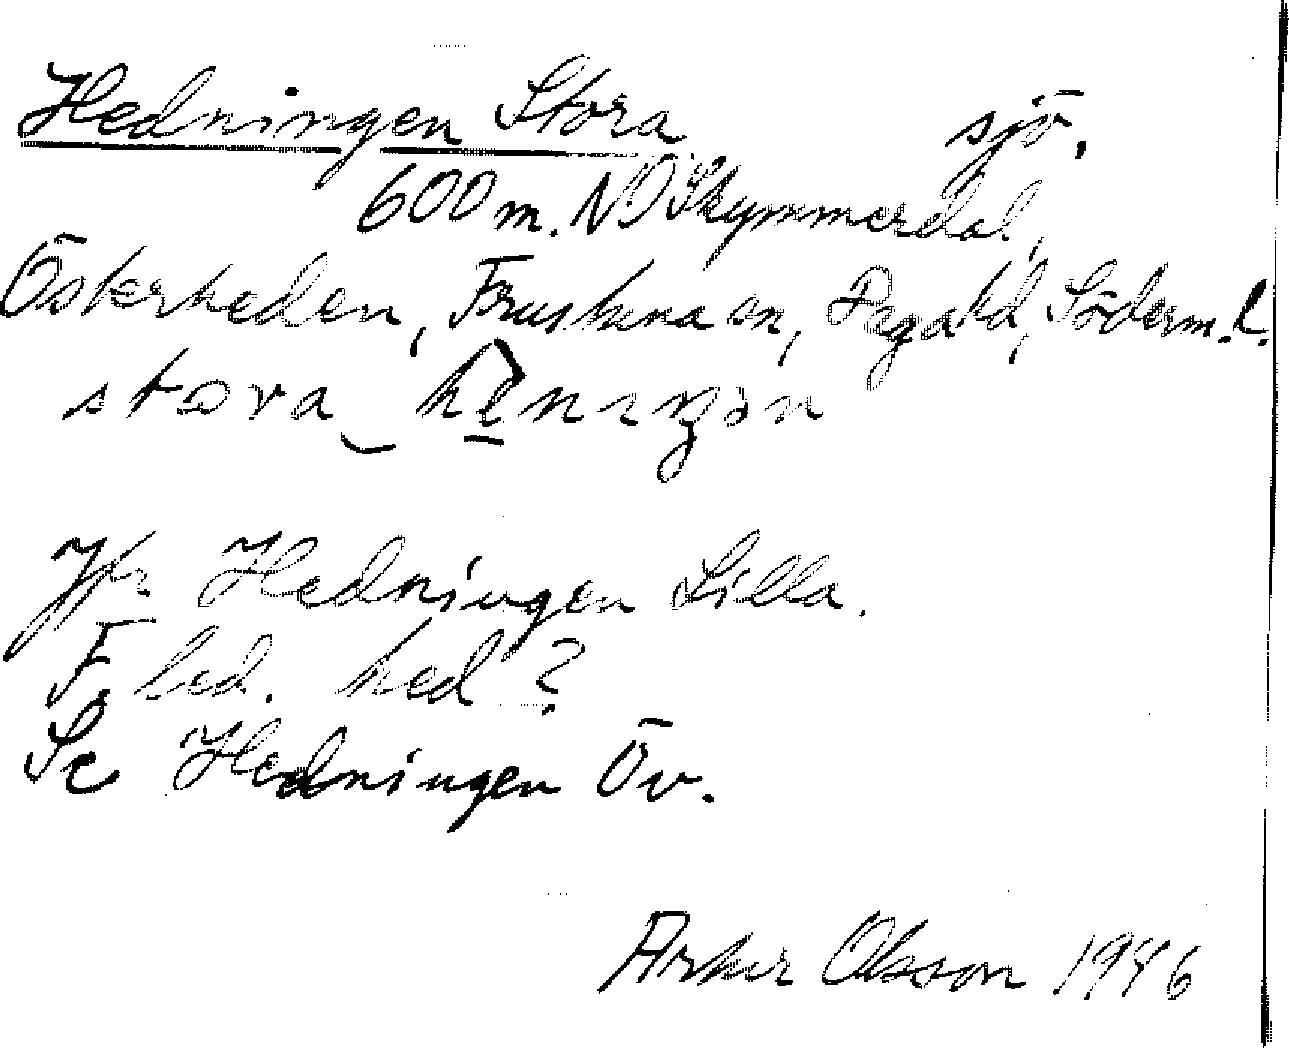 Hedningen Stora sjö,
600 m. NO Skymmerdal,
Österheden, Frustuna sn, Daga hd, Söderm. l.
stora heningən
Jfr Hedningen Lilla.
F. led. hed?
Se Hedningen Öv.
Arthur Olsson 1946